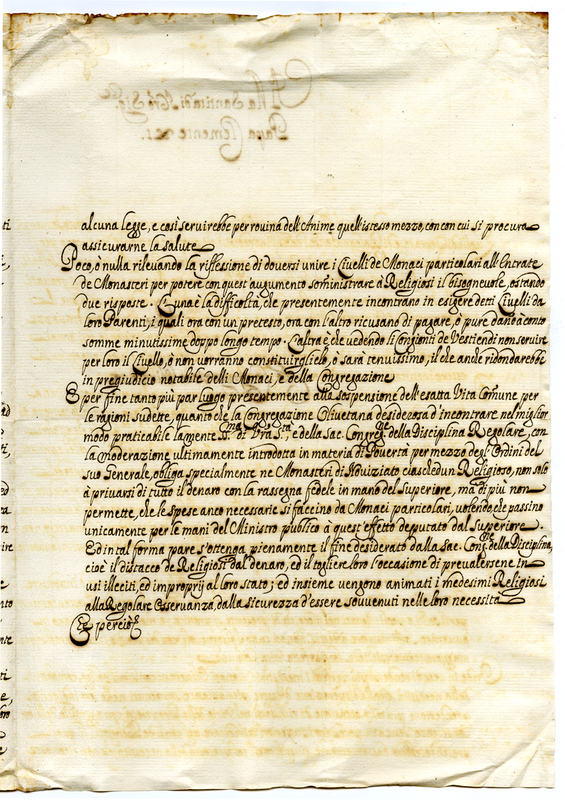 alcuna legge, e così servirebbe per rovina dell'Anime quell'istesso mezzo, con con cui si procura
assicurarne la salute
Poco, ò nulla rilevando la riflessione di doversi unire i Livelli de Monaci particolari all'Entrate
de Monasteri per potere con quest'augumento somministrare à Religiosi il bisognevole, ostando
due risposte. L'una è la difficoltà, che presentemente incontrano in esigere detti Livelli da
loro Parenti, i quali ora con un pretesto, ora con l'altro ricusano di pagare, ò pure dano à conto
somme minutissime doppo longo tempo. L'altra è, che vedendo li Congionti de Vestiendi non servire
per loro il Livello, ò non vorranno constituirglielo, ò sarà tenuissimo, il che anche ridondarebbe
in pregiudicio notabile delli Monaci, e della Congregazione
E per fine tanto più par luogo presentemente alla sospensione dell'esatta Vita Comune per
le ragioni sudette, quanto che la Congregazione Olivetana desiderosa d'incontrare nel miglior
modo praticabile la mente S.ma di V'ra S.tà, e della Sac. Congreg.ne della Disciplina Regolare, con
la moderazione ultimamente introdotta in materia di Povertà per mezzo degl'Ordini del
suo Generale, obliga specialmente ne Monasteri di Noviziato ciaschedun Religioso, non solo
à privarsi di tutto il denaro con la rassegna fedele in mano del Superiore, mà di più non
permette, che le spese anco necessarie si faccino da Monaci particolari, volendo che passino
unicamente per le mani del Ministro publico à quest'effetto deputato dal Superiore.
Ed in tal forma pare s'ottenga pienamente il fine desiderato dalla Sac. Cong.ne della Disciplina,
cioè il distacco de Religiosi dal denaro, ed il togliere loro l'occasione di prevalersene in
usi illeciti, ed improprij al loro stato; ed insieme vengono animati i medesimi Religiosi
alla Regolare Osservanza, dalla sicurezza d'essere sovvenuti nelle loro necessità
Che perciò &